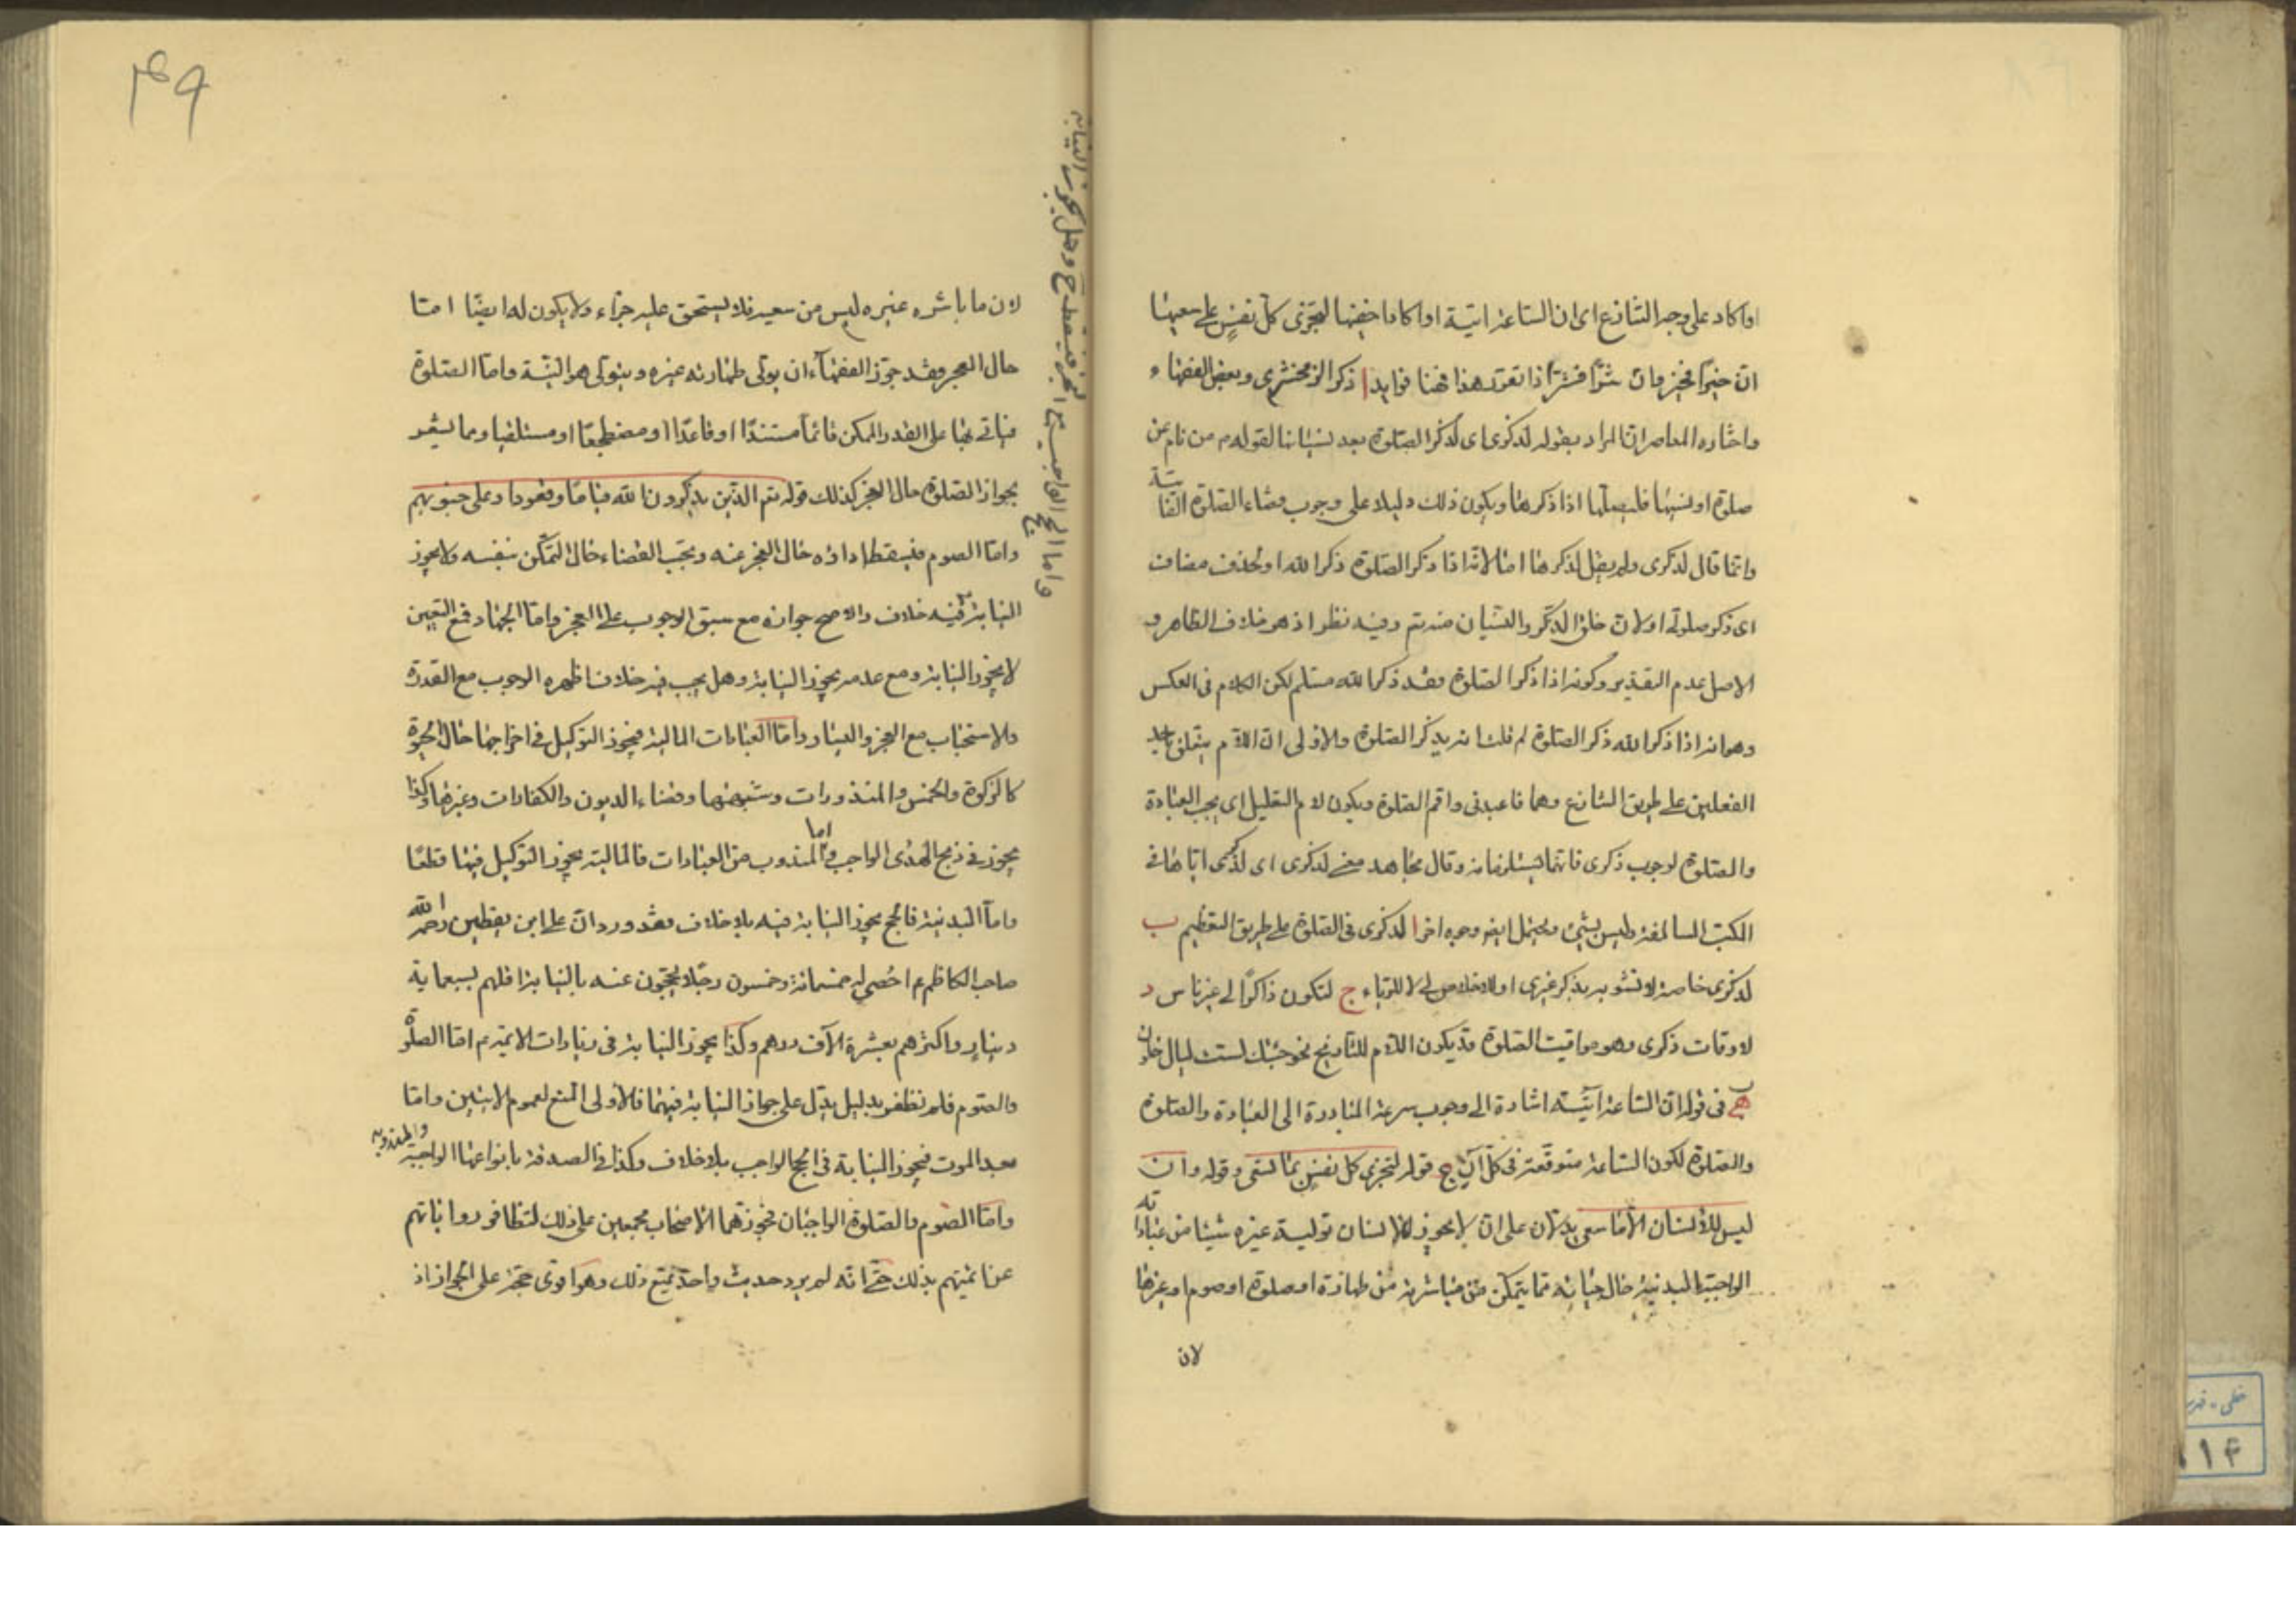 او اكاد على وجه التنازع اى ان الساعة اتية او اكاد اخفيها لتجزى كل نفس على سعيها
ان خيرا فخير وان شرا فشر اذا تقرر هذا فهنا فوايد ا ذكر الزمخشرى وبعض الفقهاء و
واختاره المعاصر ان المراد بقوله لذكرى اى لذكر الصلوة بعد نسيانها لقوله م من نام عن
صلوة او نسيها فليصلها اذا ذكرها ويكون ذلك دليلا على وجوب قضاء الصلوة الفائتة
وانما قال لذكرى ولم يقل لذكرها اما لانه اذا ذكر الصلوة ذكر الله او بحذف مضاف
اى ذكر صلوتى او لان خلق الذكر والنسيان منه تم وفيه نظر اذ هو خلاف الظاهر و
الاصل عدم التقدير وكونه اذا ذكر الصلوة فقد ذكر الله مسلم لكن الكلام فى العكس
وهو انه اذا ذكر الله ذكر الصلوة لم قلت انه يذكر الصلوة والاولى ان اللام يتعلق باحد
الفعلين على طريق التنازع وهما فاعبدنى واقم الصلوة ويكون لام التعليل اى يجب العبادة
والصلوة لوجوب ذكرى فانهما يستلزمانه وقال مجاهد معنى لذكرى اى لذكرى اياها فى
الكتب السالفة وليس بشئ ويحتمل ايضا وجوه اخر ا لذكرى فى الصلوة على طريق التعظيم ب
لذكرى خاصة لا تشوبه بذكر غيرى او للاخلاص لى لا للرياء ج لتكون ذاكرا لى غير ناس د
لاوقات ذكرى وهو مواقيت الصلوة قد يكون اللام للتاريخ نحو جئتك لست ليال خلون
ب فى قوله ان الساعة اتية اشارة الى وجوب سرعة المبادرة الى العبادة والصلوة
والصلوة لكون الساعة متوقعة فى كل آن ج قوله لتجزى كل نفس بما تسعى وقوله وان
ليس للانسان الا ما سعى يدلان على ان لا يجوز للانسان تولية غيره شيئا من عباداته
الواجبة البدنية حال حياته مما يتمكن من مباشرته من طهارة او صلوة او صوم او غيرها
لان
۴۹
لان ما باشره غيره ليس من سعيه فلا يستحق عليه جزاء ولا يكون له ايضا اما
حال العجز فقد جوز الفقهاء ان يولى طهارته غيره وينوى هو النية واما الصلوة
فياتى بها على القدر الممكن قائما مستندا او قاعدا او مضطجعا او مستلقيا ومما يشعر
بجواز الصلوة حال العجز كذلك قوله تم الذين يذكرون الله قياما وقعودا وعلى جنوبهم
واما الصوم فيسقط اداؤه حال العجز عنه ويجب القضاء حال التمكن بنفسه ولا يجوز
النيابة فيه خلاف والاصح جوازه مع سبق الوجوب على العجز واما الجهاد فمع التعين
لا يجوز النيابة ومع عدمه يجوز النيابة وهل يجب فيه خلاف اظهره الوجوب مع القدرة
والاستحباب مع العجز واليسار واما العبادات المالية فيجوز التوكيل فى اخراجها حال الحيوة
كالزكوة والخمس والمنذورات وشبهها وقضاء الديون والكفارات وغيرها وكذا
يجوز فى ذبح الهدى الواجب واما المندوب من العبادات فالمالية يجوز التوكيل فيها قطعا
واما البدنية فالحج يجوز النيابة فيه بلا خلاف فقد ورد ان على ابن يقطين رحمه الله
صاحب الكاظم ع احصى له خمسمائة وخمسون رجلا يحجون عنه بالنيابة اقلهم بسبعماية
دينار واكثرهم بعشرة الآف درهم وكذا يجوز النيابة فى زيارات الائمة ع اما الصلوة
والصوم فلم نظفر بدليل يدل على جواز النيابة فيهما فالاولى المنع لعموم الايتين واما
بعد الموت فيجوز النيابة فى الحج الواجب بلا خلاف وكذا فى الصدقة بانواعها الواجبة والمندوبة
واما الصوم والصلوة الواجبان فجوزهما الاصحاب مجمعين على ذلك لتظافر رواياتهم
عن ائمتهم بذلك حتى انه لم يرد حديث واحد يمنع ذلك وهو اقوى حجة على الجواز اذ
واما الحج الواجب مع العجز فيسقط ح وهل يجوز النيابة